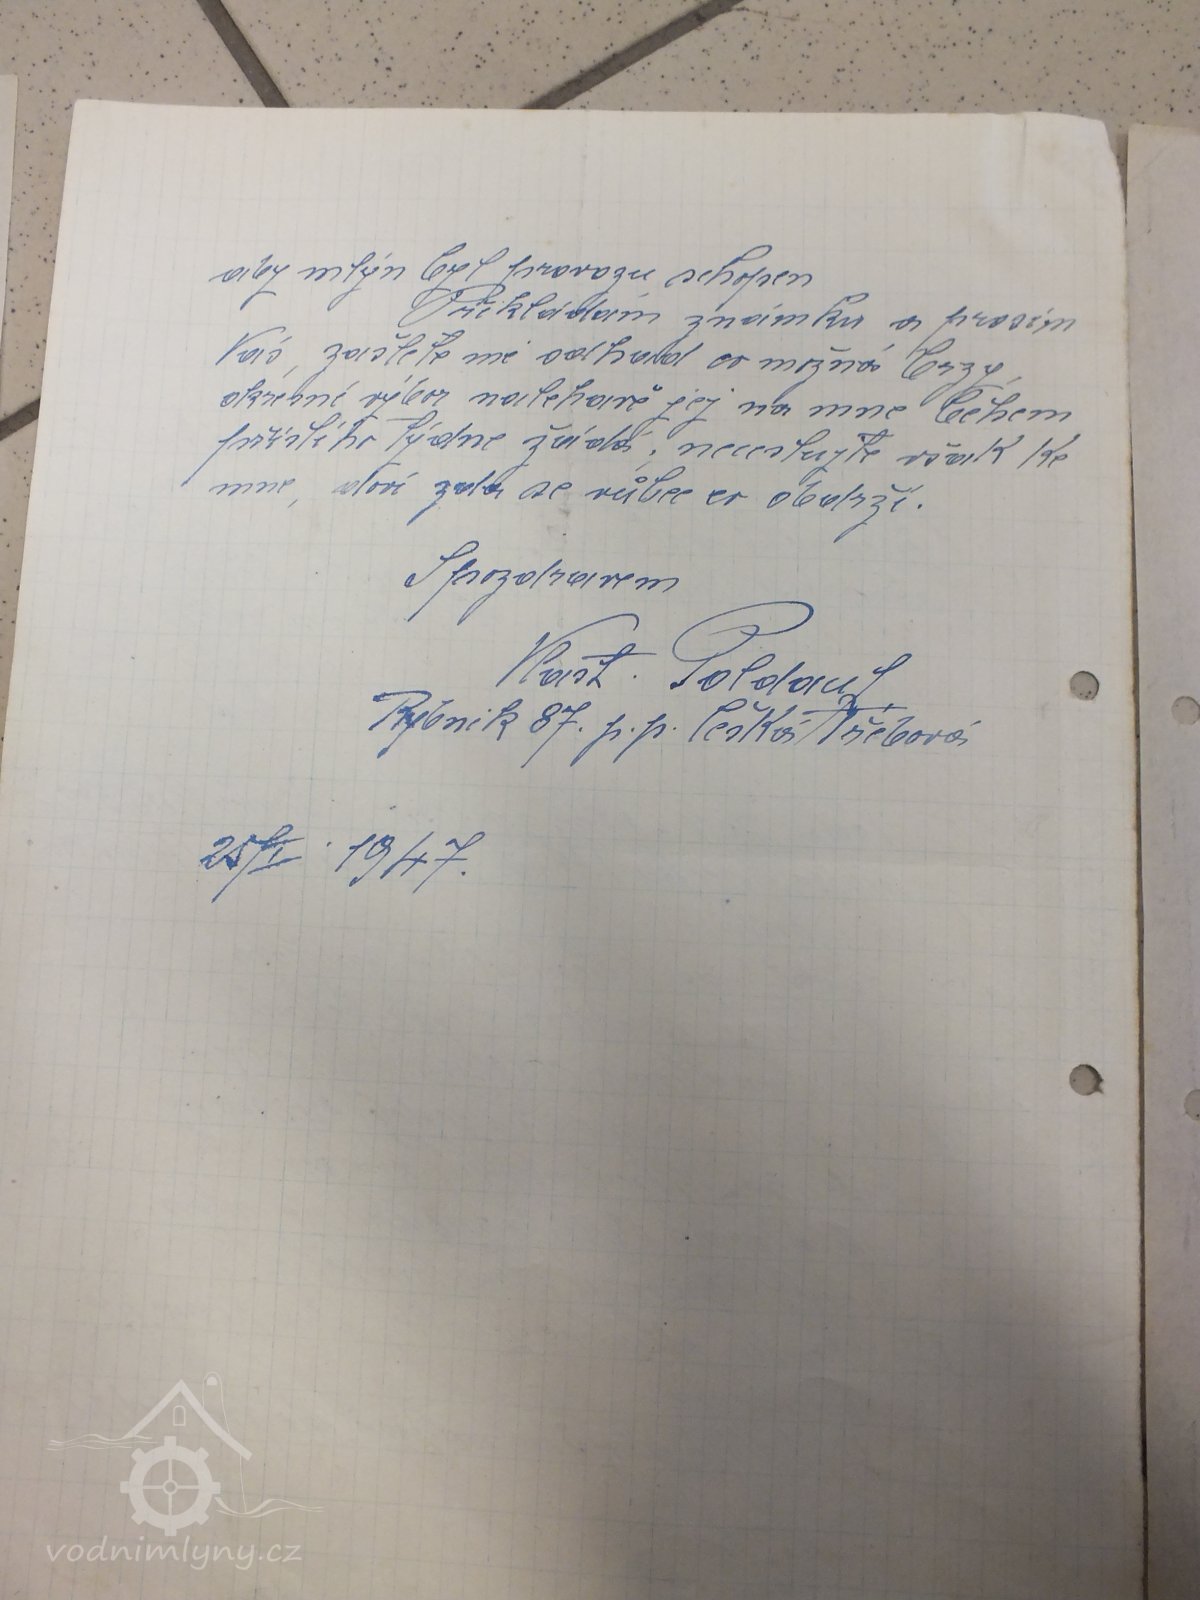 aby mlýn byl provozu schopen
Přikládám známku a prosím
Vás, zašlete mi odhad co možná brzy,
okresní výbor naléhavě jej na mne během
příštího týdne žádá, necestujte však ke
mne, dosi zda se vůbec co obdrží.
S pozdravem
Vlast. Poldauf
Rybník 87. p.p. Česká Třebová
25/I 1947.
vodnimlyny.cz